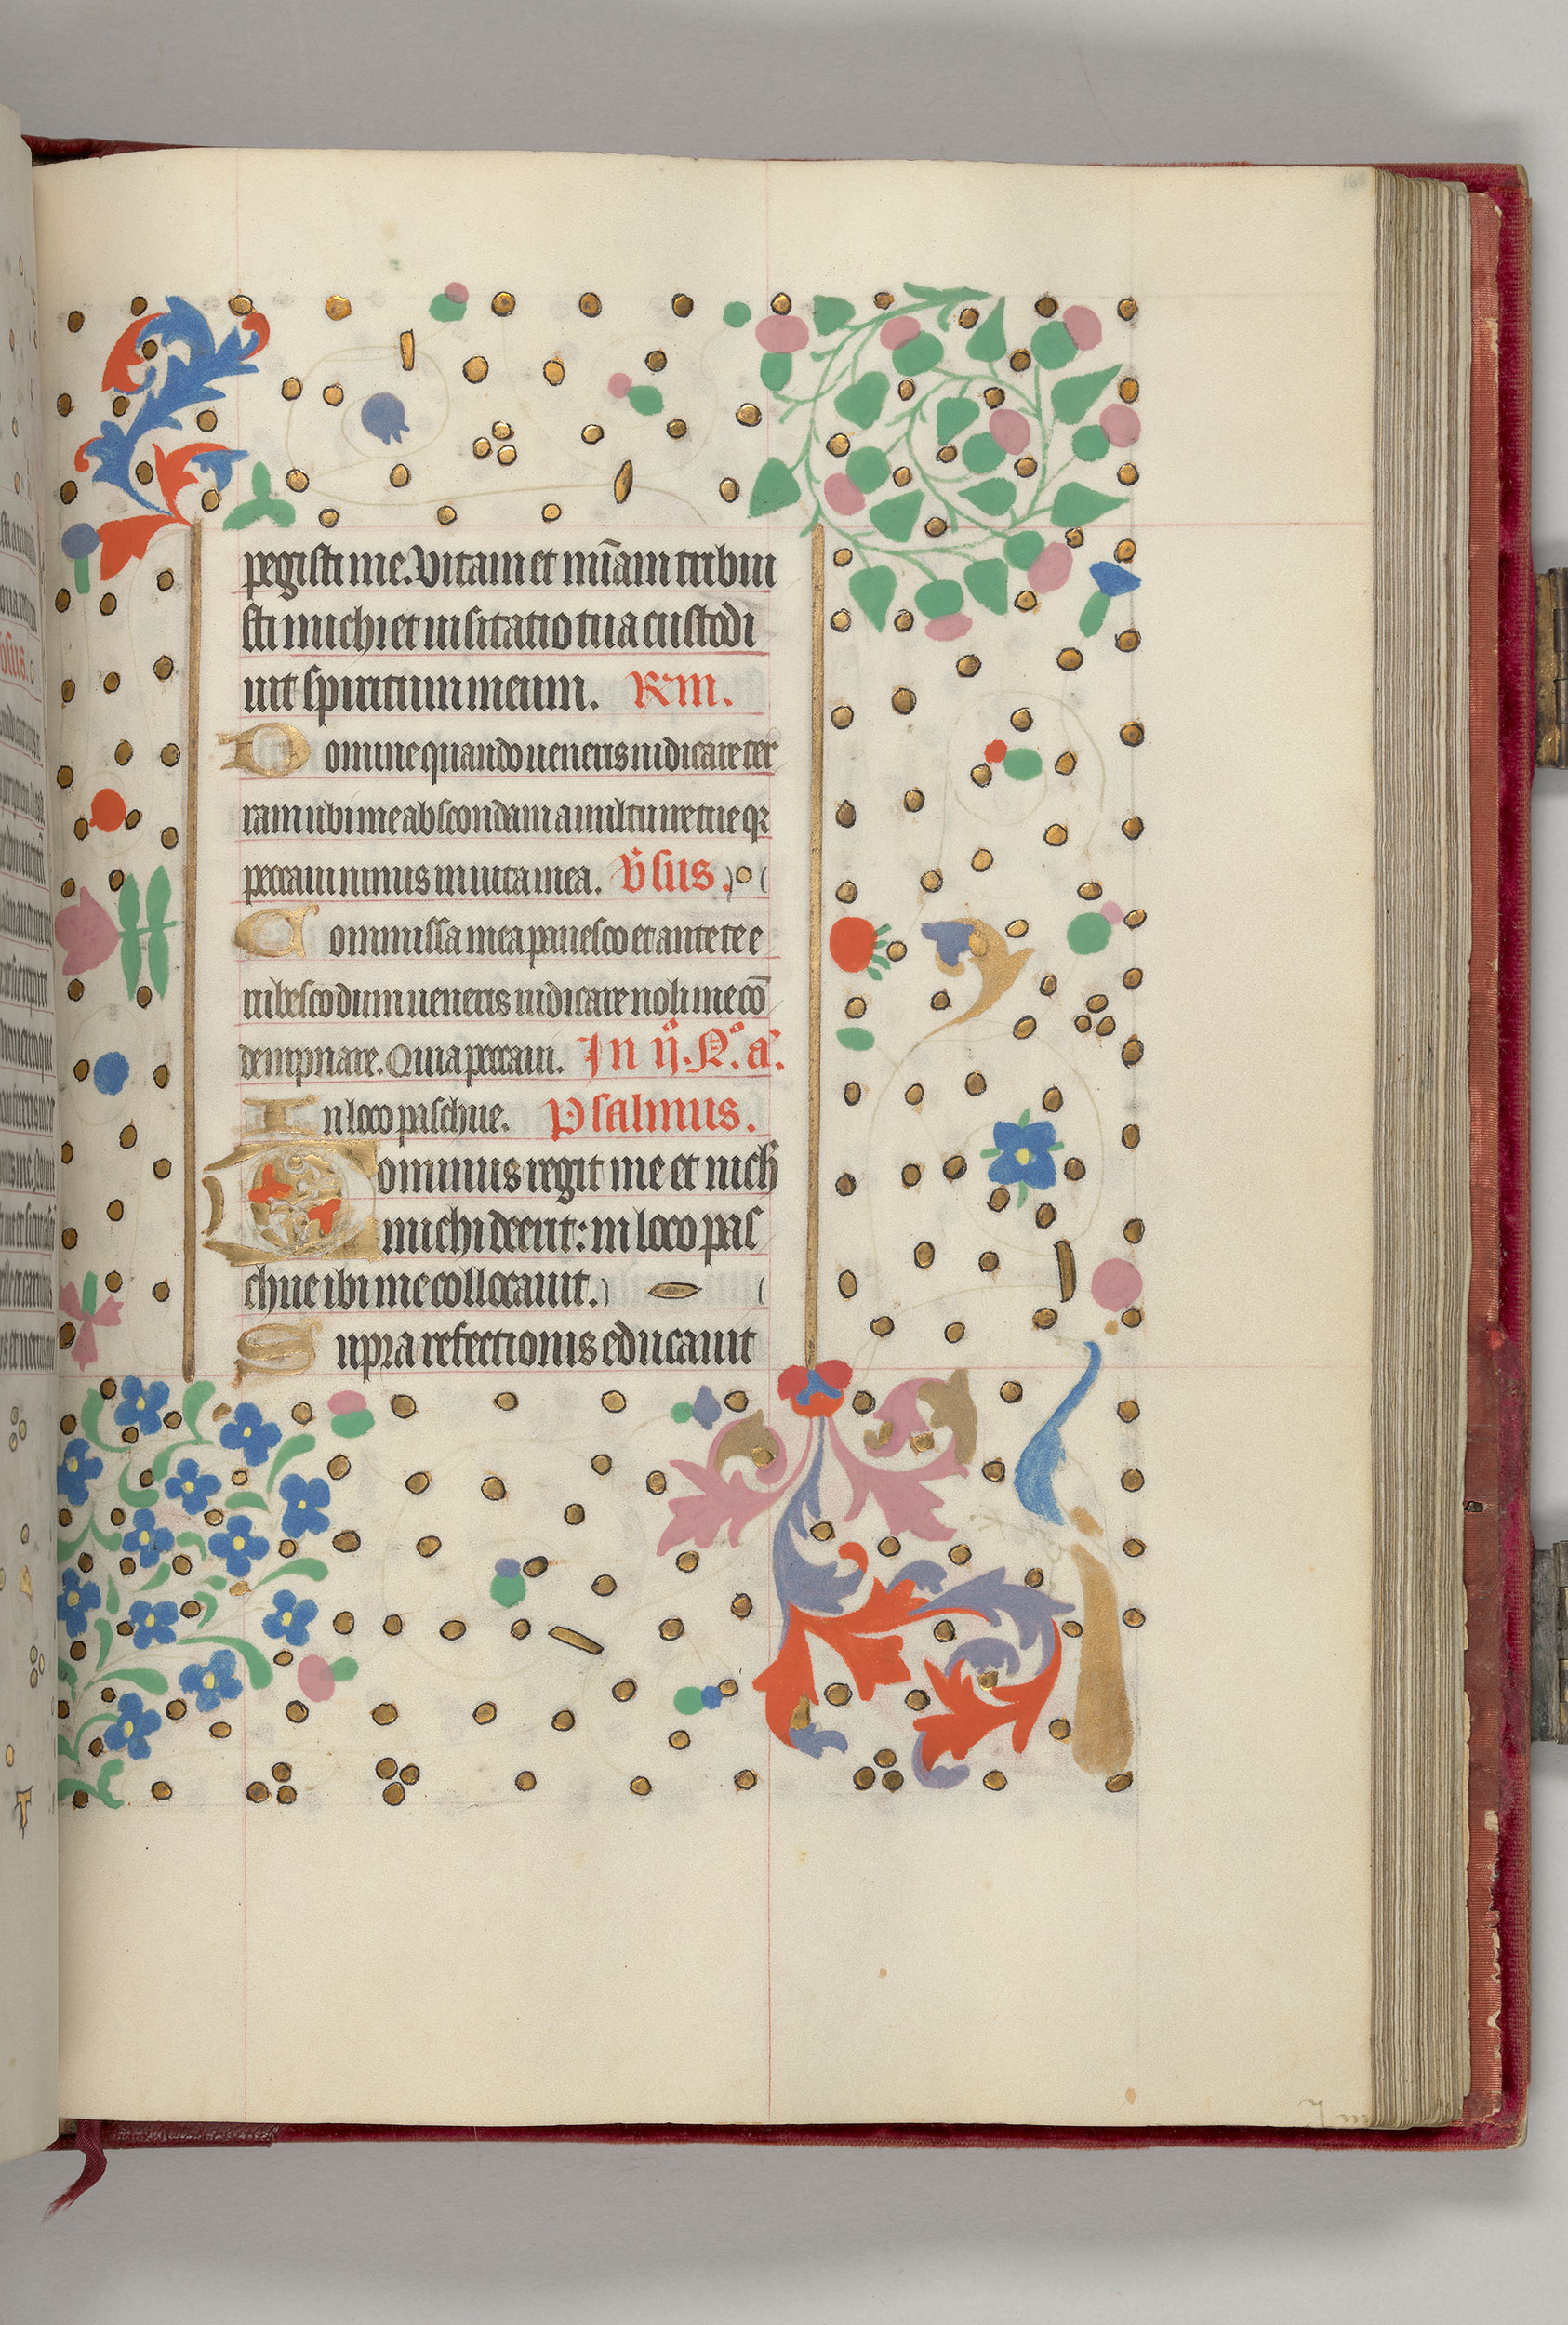 pegisti me. Vitam et mīam tribui
sti michi et uisitatio tua custodi
uit spiritum meum. Rm.
Domine quando ueneris iudicare ter
ram ubi me abscondam a uultu ire tue qr
peccaui nimis in uita mea. Vsus.
Commissa mea pauesco et ante te e
rubesco dum ueneris iudicare noli me cō
dempnare. Quia peccaui. In ij. N. a.
In loco paschue. Psalmus.
Dominus regit me et nich
michi deerit: in loco pas
chue ibi me collocauit.
Supra refectionis educauit